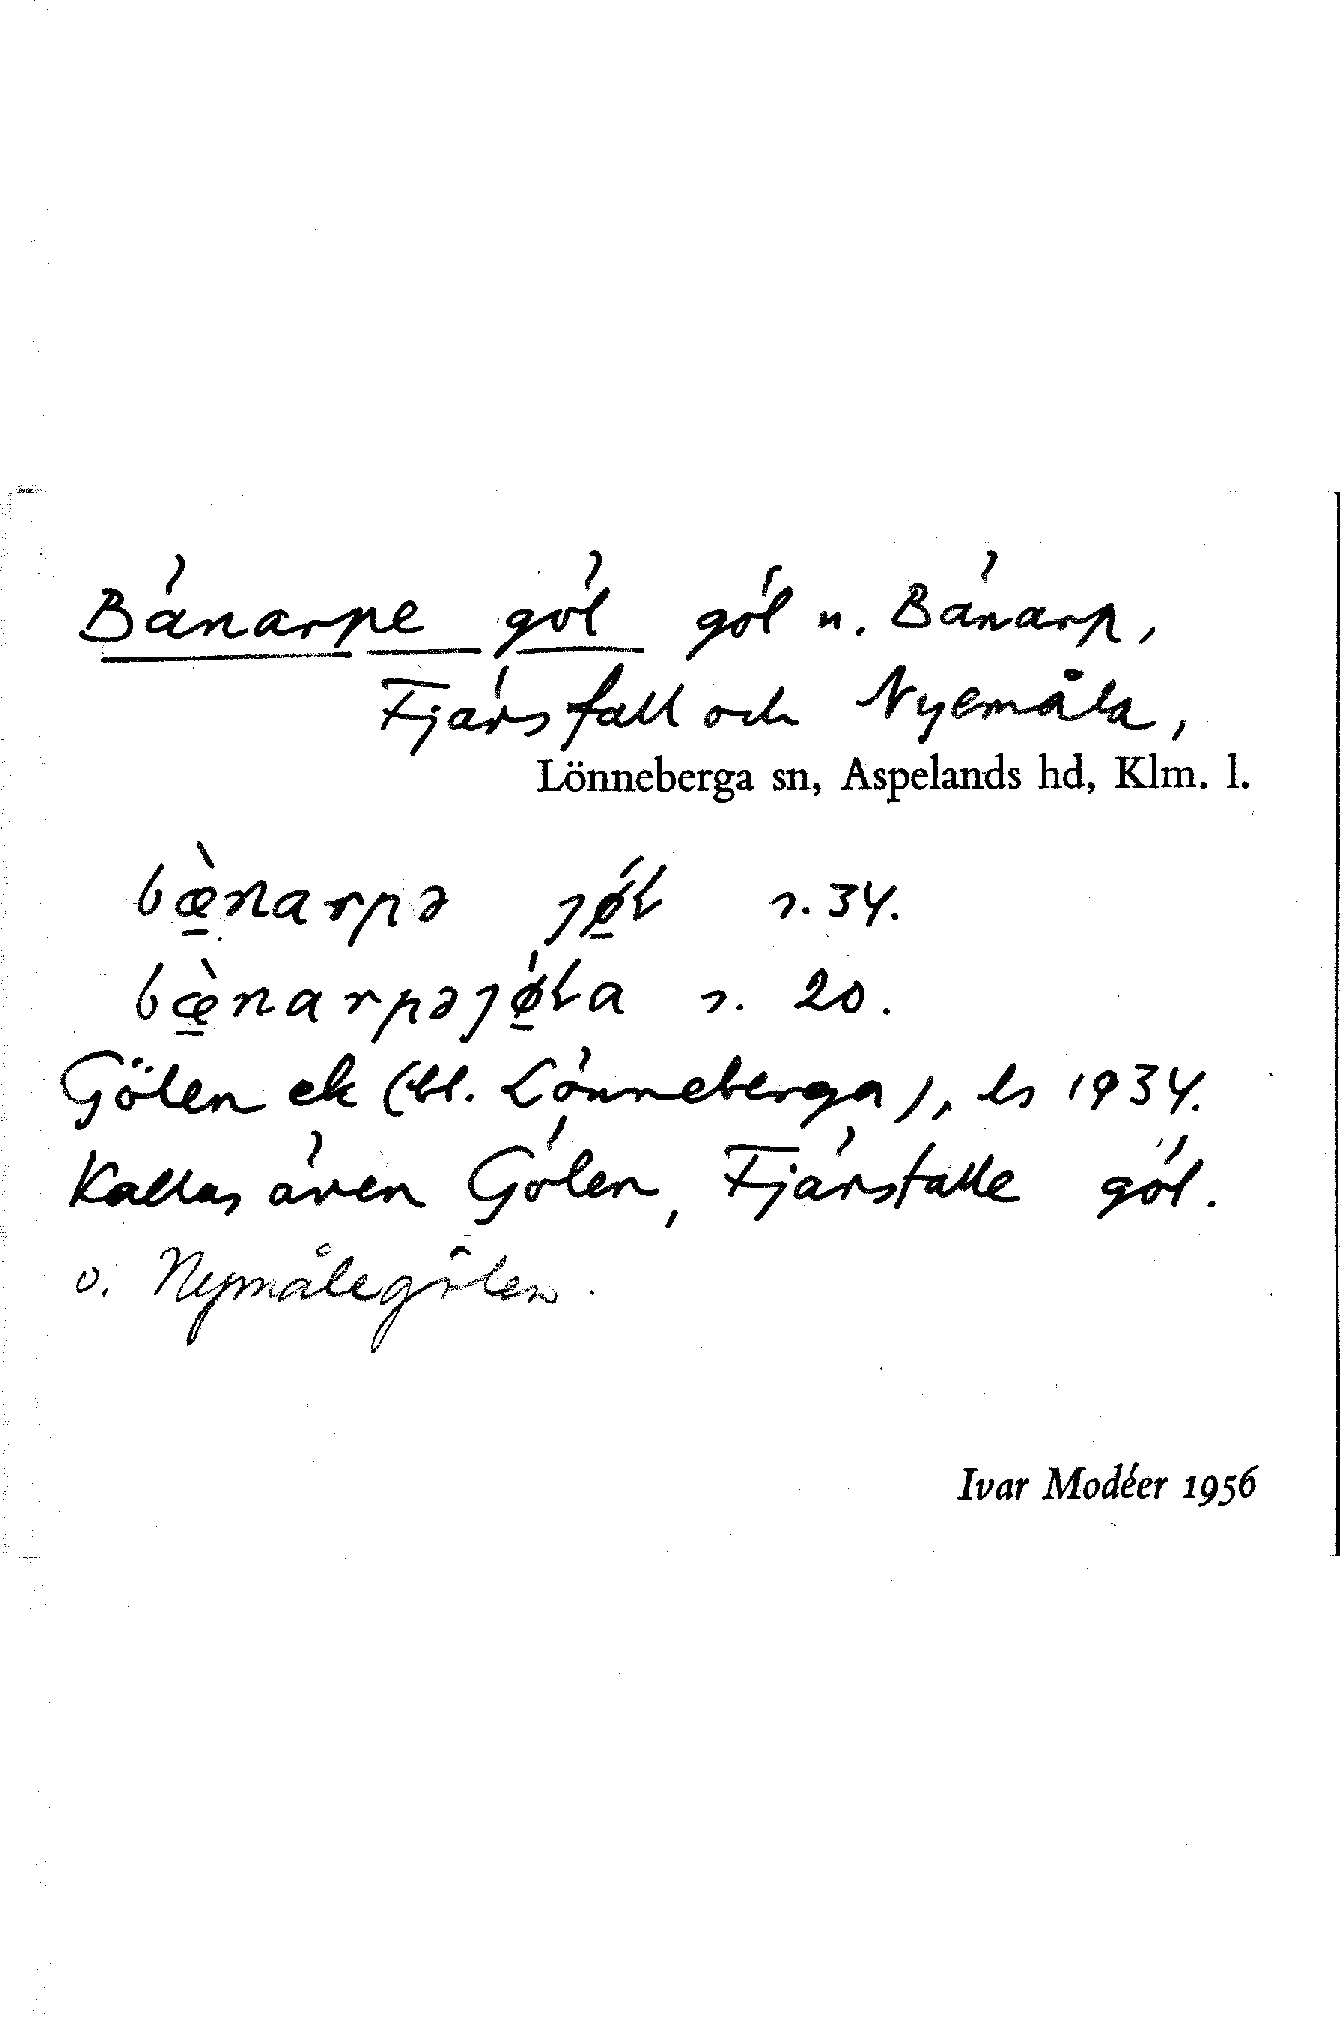 Bänarpe göl göl u. Bänarp,
Fjärsfall och Nyemåla,
Lönneberga sn, Aspelands hd, Klm. l.
bæ̲̀narpə ȷǿ̲ɫ s. 34.
bæ̲̀narpəȷǿ̲ɫa s. 20.
Gölen ek (bl. Lönneberga), ls 1934.
Kallas även Gölen, Fjärsfalle göl.
o. Nymålegölen.
Ivar Modéer 1956